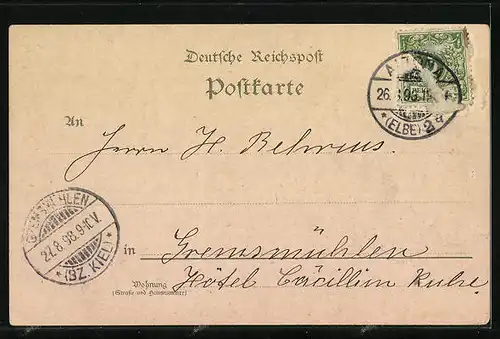 Deutsche Reichspost
Postkarte
ALTONA
26. 8. 98. 11
* (ELBE) 2 q
An
Herrn H. Behrens.
GREMSMÜHLEN
27.8.98. 9-10.V.
* (BZ. KIEL) *
in Gremsmühlen
Hôtel Cäcilien Ruhe.
Wohnung
(Straße und Hausnummer)